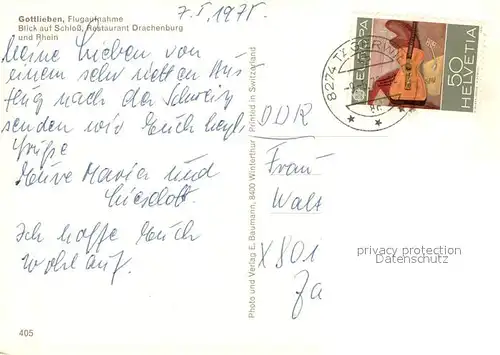 Gottlieben, Flugaufnahme
Blick auf Schloß, Restaurant Drachenburg
und Rhein
7.5.1975
Meine Lieben von
einem sehr netten Aus
flug nach der Schweiz
senden wir Euch herzl.
Grüße
Eure Maria und
Ich hoffe Euch
wohlauf.
405
Photo und Verlag E. Baumann, 8400 Winterthur Printed in Switzerland
EUROPA
50 HELVETIA
8274
DDR
Frau
Walt
X 801
privacy protection
Datenschutz